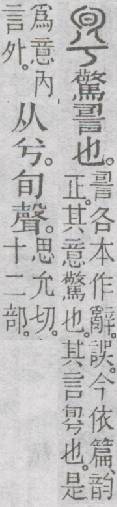 驚䛐也。
䛐各本作辭。誤。今依篇、韵
正。其意驚也。其言也。是
爲意內
言外。
从兮。旬聲。
思允切。
十二部。